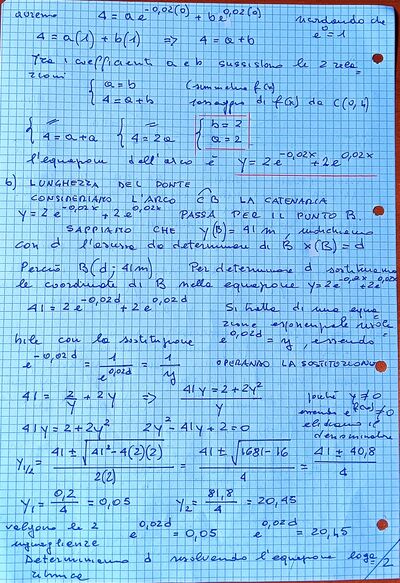 avremo 4 = a e^-0,02(0) + b e^0,02(0) ricordando che e^0 = 1
4 = a(1) + b(1) => 4 = a + b
Tra i coefficienti a e b sussistono le 2 relazioni
{ a = b (simmetria f(x))
{ 4 = a+b passaggio di f(x) da C(0,4)
{ = { = { b = 2
{ 4 = a+a { 4 = 2a { a = 2
l'equazione dell'arco è y = 2e^-0,02x + 2e^0,02x
b) LUNGHEZZA DEL PONTE
CONSIDERIAMO L'ARCO CB LA CATENARIA
y = 2e^-0,02x + 2e^0,02x PASSA PER IL PUNTO B.
SAPPIAMO CHE y(B) = 41m, indichiamo
con d l'ascissa da determinare di B x(B) = d
Perciò B(d; 41m) Per determinare d sostituiamo
le coordinate di B nella equazione y = 2e^-0,02x + 2e^0,02x
41 = 2e^-0,02d + 2e^0,02d Si tratta di una equazione esponenziale risolvibile
con la sostituzione e^0,02d = y, essendo
e^-0,02d = 1/e^0,02d = 1/y OPERANDO LA SOSTITUZIONE
41 = 2/y + 2y => 41y = 2+2y²/y poiché y ≠ 0
essendo e^f(x) ≠ 0
elidiamo il
denominatore
41y = 2+2y² 2y² - 41y + 2 = 0
y1/2 = 41 ± √41²-4(2)(2) / 2(2) = 41 ± √1681-16 / 4 = 41 ± 40,8 / 4
y1 = 0,2/4 = 0,05 y2 = 81,8/4 = 20,45
valgono le 2 e^0,02d = 0,05 e^0,02d = 20,45
uguaglianze
Determiniamo d risolvendo l'equazione logaritmica
2